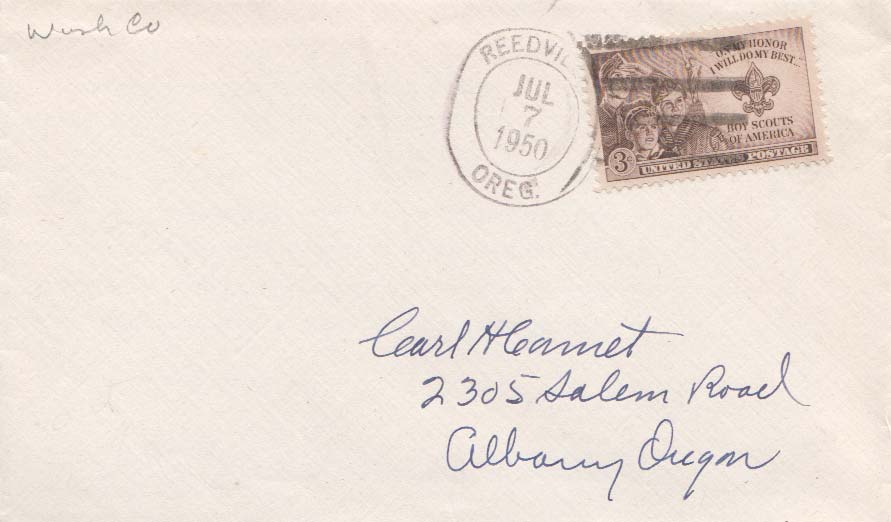 Wash Co
REEDVIL
JUL
7
1950
OREG.
ON MY HONOR
I WILL DO MY BEST...
BOY SCOUTS
OF AMERICA
3¢
UNITED STATES POSTAGE
Carl H Camet
2305 Salem Road
Albany Oregon